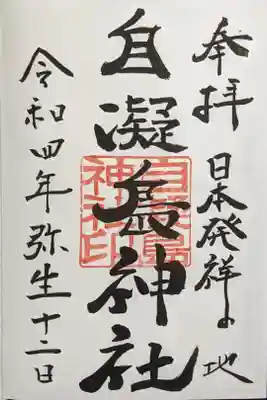 奉拝
日本発祥の地
自凝島神社
自凝島
神社印
令和四年弥生十二日